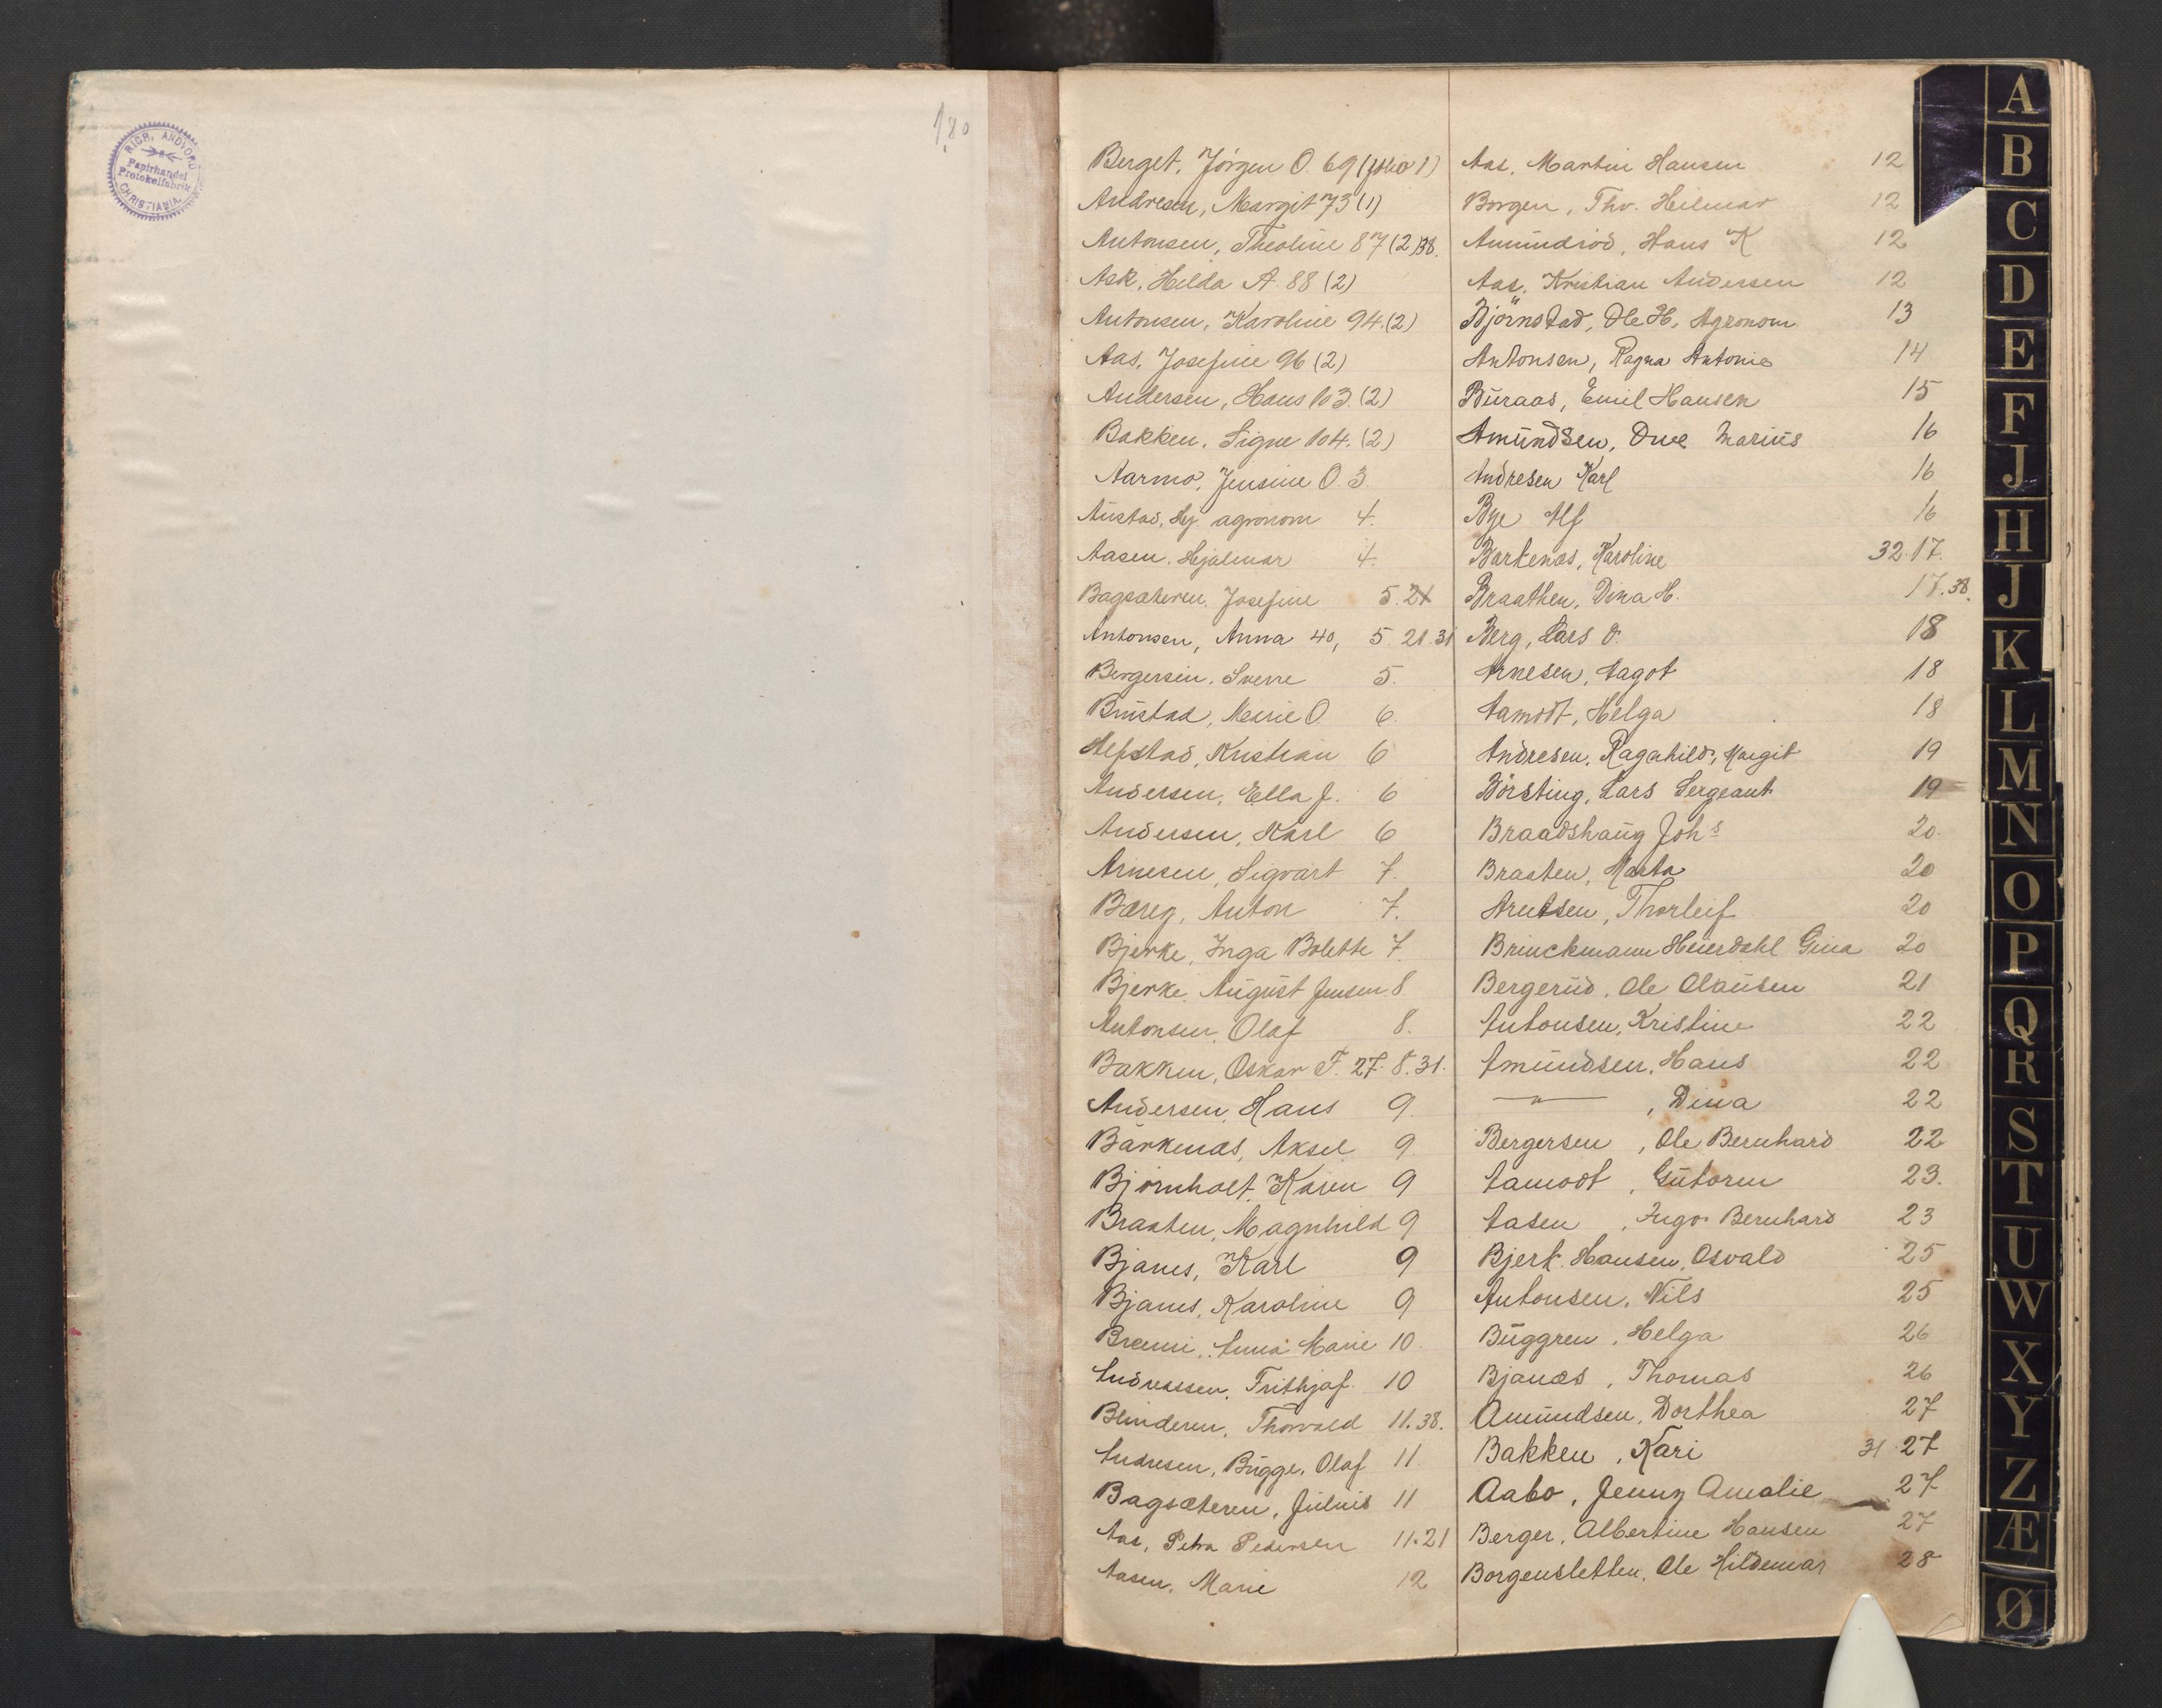 RICH. ANDVORD
Papirhandel
Protokolfabrik
CHRISTIANIA.
1,80
Berget, Jörgen O. 69 (folio 1)
Andresen, Margit 73 (1)
Antonsen, Theoline 87 (2) 38.
Ask, Hilda A. 88 (2)
Antonsen, Karoline 94. (2)
Aas, Josefine 96 (2)
Andersen, Hans 103. (2)
Bakken, Signe 104. (2)
Aarmo, Jensine O 3.
Austad, Hj. agronom 4.
Aasen, Hjalmar 4.
Bagsæteren, Josefine 5. 21
Antonsen, Anna 40, 5. 21. 31
Bergersen, Sverre 5.
Bustad, Marie O. 6.
Alfstad, Kristian 6
Andersen, Ella J. 6
Andersen, Karl 6
Arnesen, Sigvart 7.
Bæreg, Anton 7.
Bjerke, Inga Bolette 7.
Bjerke, August Jensen 8.
Antonsen, Olaf 8.
Bakken, Oskar F. 27. 8. 31.
Andersen, Hans 9.
Barkenæs, Aksel 9
Bjørnholt, Karen 9
Braaten, Magnhild 9
Bjanes, Karl 9
Bjanes, Karoline 9
Anna Marie 10.
Andreassen, Frithjof 10
Blinderen, Thorvald 11. 38.
Andresen, Bugge, Olaf 11.
Bagsæteren, Julius 11
Aas, Petra Pedersen 11. 21
Aasen, Marie 12
Aas, Martin Hansen 12
Borgen, Thv. Hilmar 12
Amundröd, Hans K 12
Aas, Kristian Andersen 12
Björnstad, Ole H. Agronom 13
Antonsen, Ragna Antonie 14
Buraas, Emil Hansen 15
Amundsen, Ove Marius 16
Andresen Karl 16
Bye Alf 16
Barkenæs, Karoline 32. 17.
Braathen, Dina H. 17. 38.
Berg, Lars O. 18
Arnesen, Aagot 18
Aamodt, Helga 18
Andresen, Ragnhild, Margit 19
Börsting, Lars Sergeant 19
Braadshaug Johs 20.
Braaten, Marta 20
Arntsen, Thorleif 20
Brinckmann Heierdahl Gina 20
Bergerud, Ole Olausen 21
Antonsen, Kristine 22
Amundsen, Hans 22
—"— , Dina 22
Bergersen , Ole Bernhard 22
Aamodt , Gutorm 23.
Aasen , Inga Bernhard 23
Bjerk. Hansen, Osvald 25
Antonsen, Nils 25
Buggren , Helga 26
Bjanæs , Thomas 26
Amundsen, Dorthea 27
Bakken , Kari 31. 27
Aabo , Jenny Amalie 27
Berger, Albertine Hansen 27
Borgensletten, Ole Hildemar 28
A
B
C
D
E
F
J
H
J
K
L
M
N
O
P
Q
R
S
T
U
W
X
Y
Z
Æ
Ø